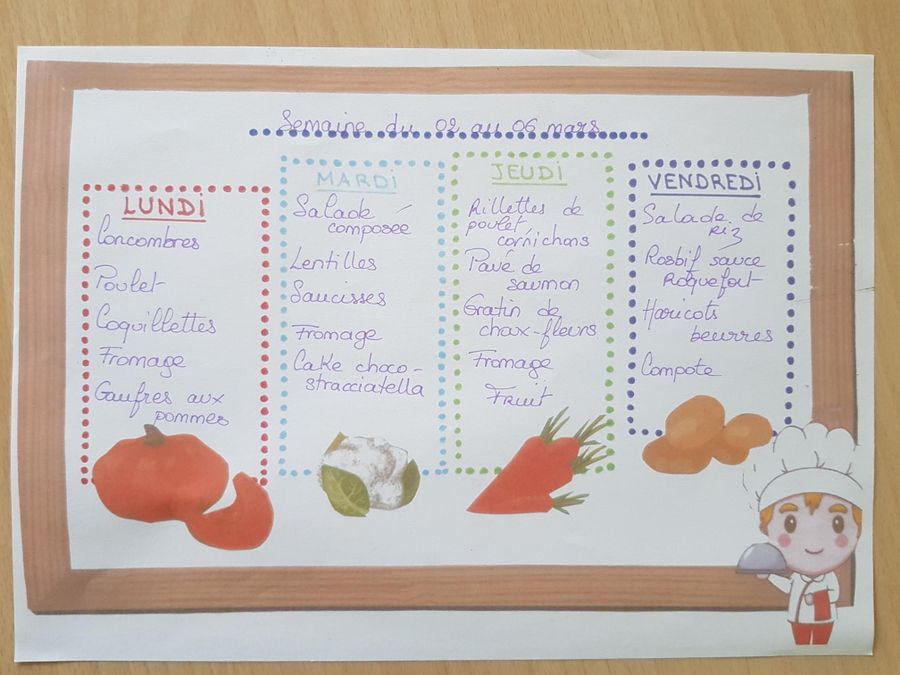 Semaine du 02 au 06 mars
LUNDi
Concombres
Poulet
Coquillettes
Fromage
Gaufres aux
pommes
MARDi
Salade
composée
Lentilles
Saucisses
Fromage
Cake choco-
stracciatella
JEUDi
Rillettes de
poulet
cornichons
Pavé de
saumon
Gratin de
choux-fleurs
Fromage
Fruit
VENDREDi
Salade de
Riz
Rosbif sauce
Roquefort
Haricots
beurres
Compote